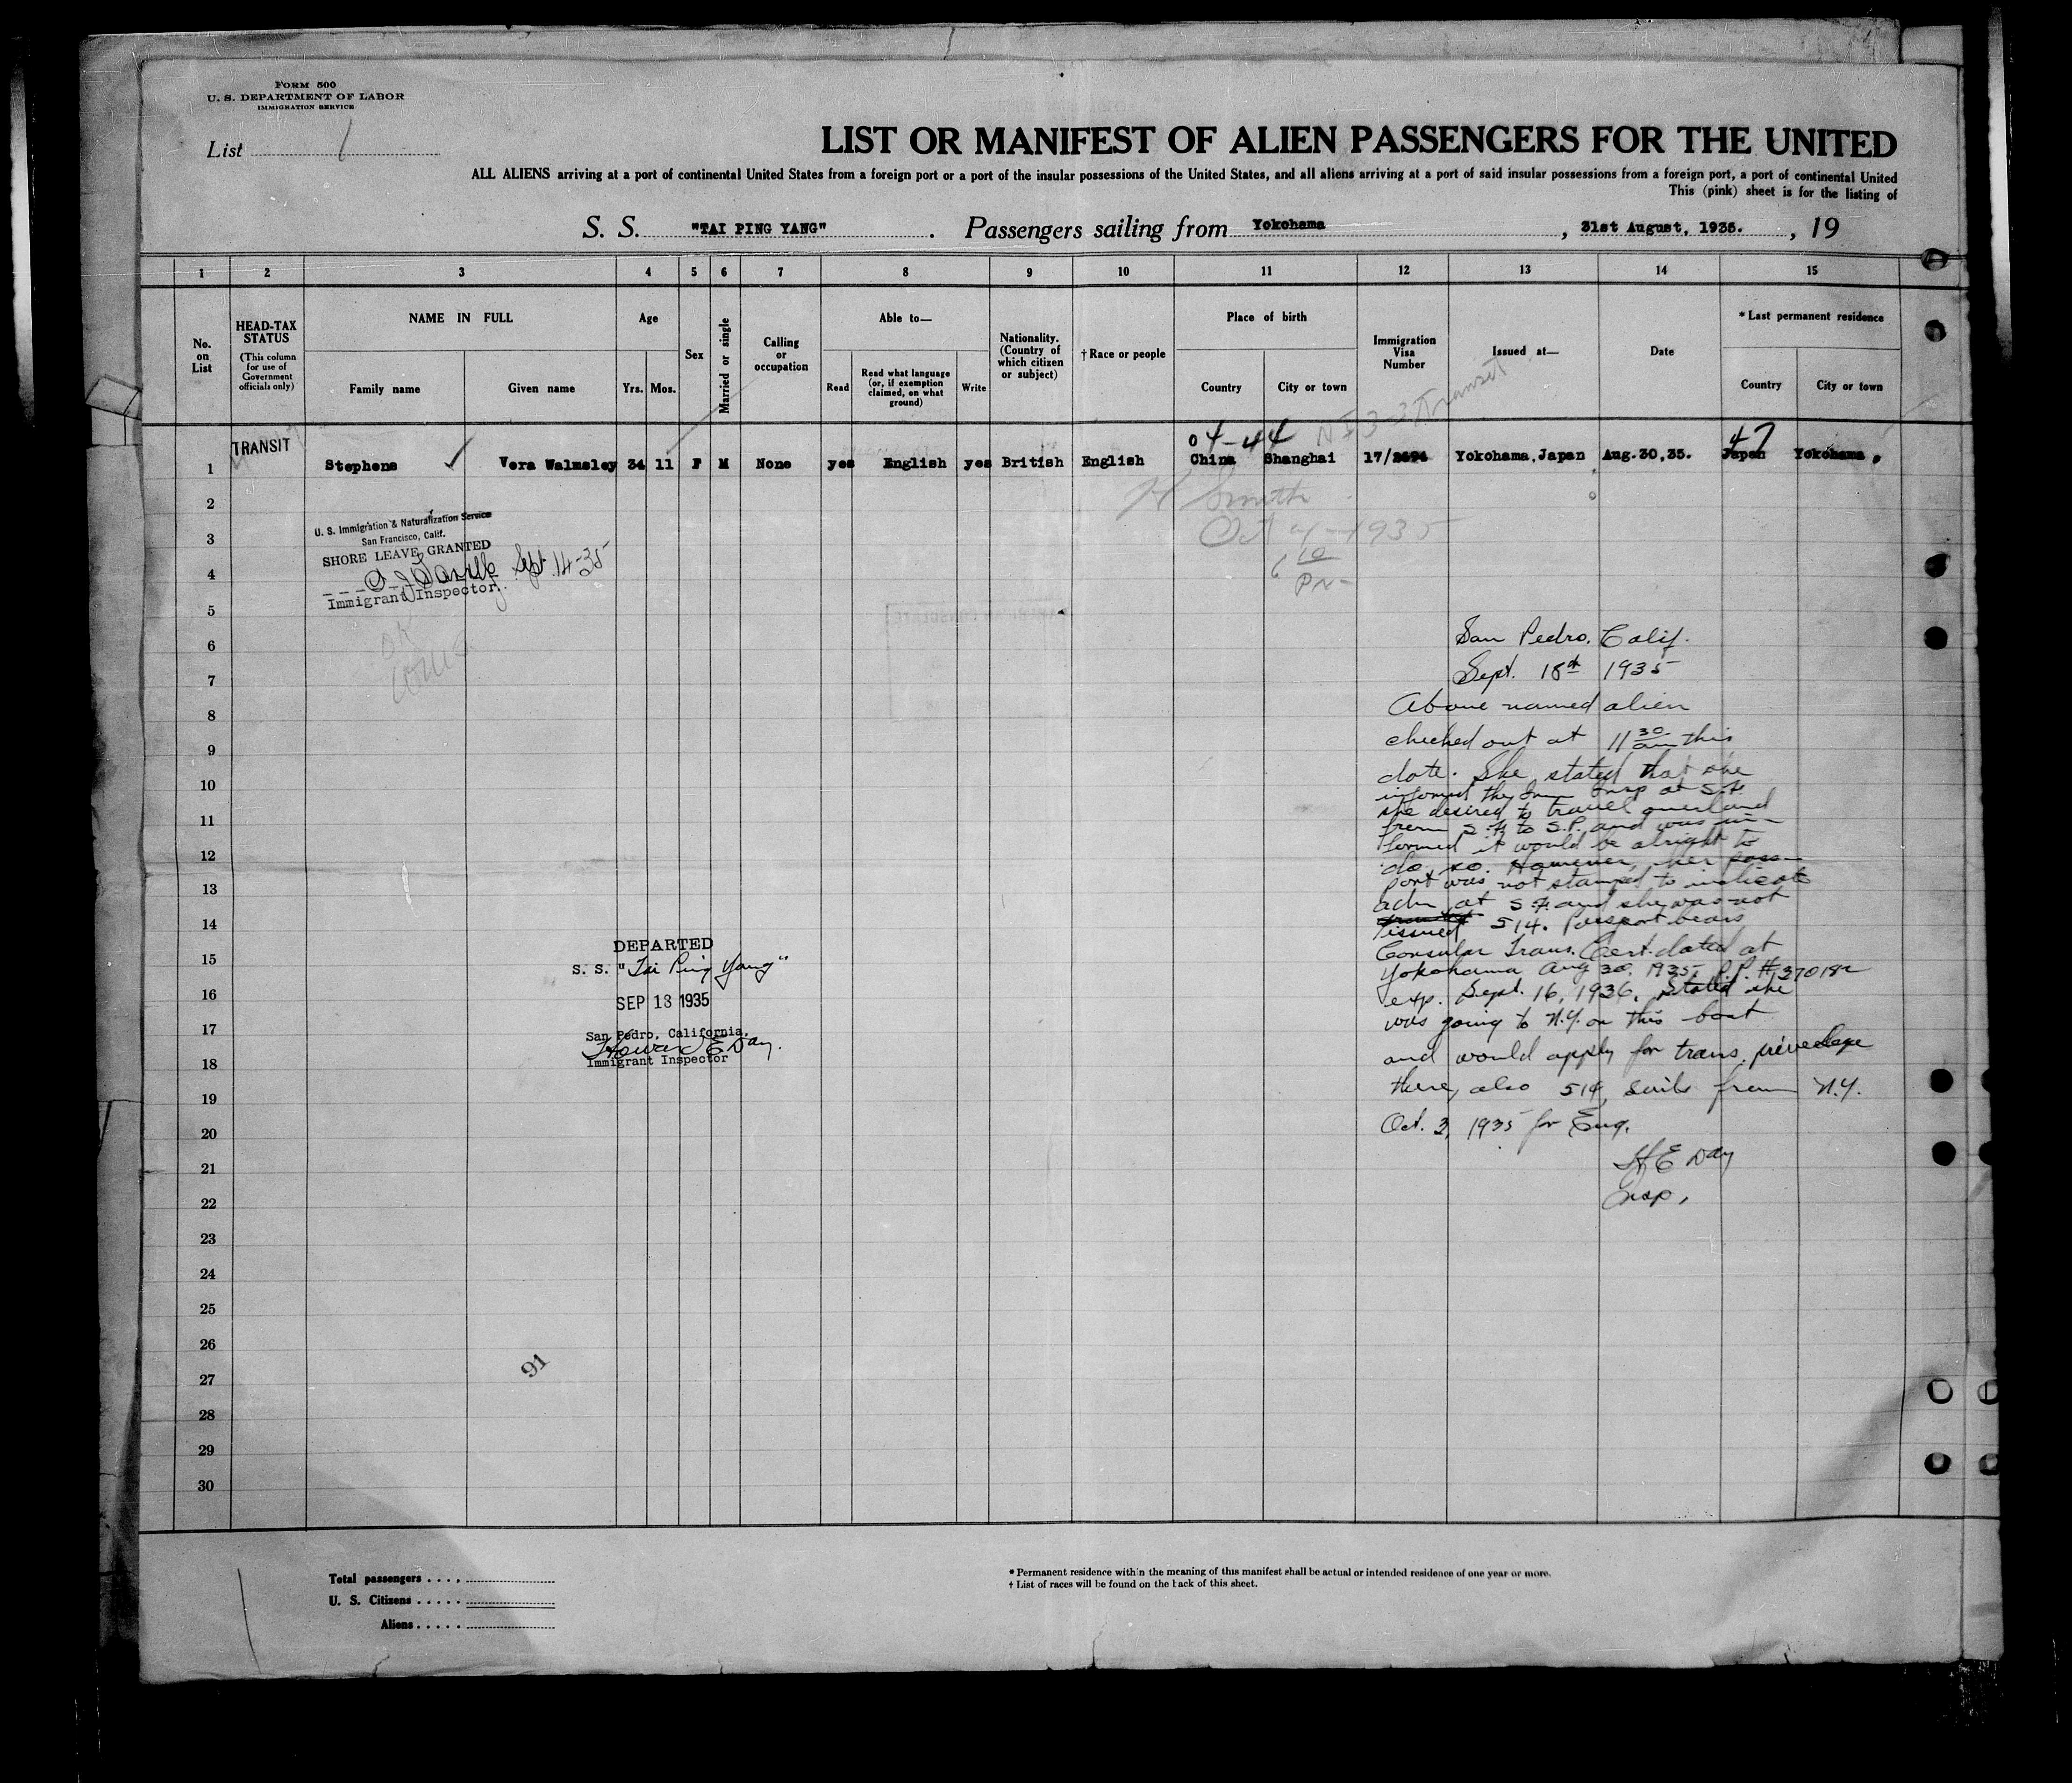 FORM 500
U. S. DEPARTMENT OF LABOR
IMMIGRATION SERVICE
List 1
LIST OR MANIFEST OF ALIEN PASSENGERS FOR THE UNITED
ALL ALIENS arriving at a port of continental United States from a foreign port or a port of the insular possessions of the United States, and all aliens arriving at a port of said insular possessions from a foreign port, a port of continental United
This (pink) sheet is for the listing of
S. S. "TAI PING YANG" . Passengers sailing from Yokohama , 31st August, 1935. , 19
1 2 3 4 5 6 7 8 9 10 11 12 13 14 15
No. on List
HEAD-TAX STATUS (This column for use of Government officials only)
NAME IN FULL
Family name Given name
Age
Yrs. Mos.
Sex
Married or single
Calling or occupation
Able to—
Read Read what language (or, if exemption claimed, on what ground) Write
Nationality. (Country of which citizen or subject)
† Race or people
Place of birth
Country City or town
Immigration Visa Number
Issued at—
Date
* Last permanent residence
Country City or town
Transit
04-44
47
TRANSIT
1 Stephens ✓ Vera Walmsley 34 11 F M None yes English yes British English China Shanghai 17/ Yokohama, Japan Aug.30,35. Japan Yokohama.
2
3
4
5
6
7
8
9
10
11
12
13
14
15
16
17
18
19
20
21
22
23
24
25
26
27
28
29
30
H Smith
Oct 4-1935
6 10
PM
U. S. Immigration & Naturalization Service
San Francisco, Calif.
SHORE LEAVE GRANTED
Sept 14-35
Immigrant Inspector.
OK
San Pedro, Calif.
Sept. 18th 1935
Above named alien
checked out at 11 30 am this
date. She stated that she
informed the Imm Insp at S.F.
she desired to travel overland
from S.F. to S.P. and was in-
formed it would be alright to
do so. However, her pass-
port was not stamped to indicate
adm at S.F. and she was not
issued 514. Passport bears
Consular Trans. Cert. dated at
Yokohama Aug 30, 1935 P.P. #370182
exp. Sept. 16, 1936. Stated she
was going to N.Y. on this boat
and would apply for trans. priveledge
there, also 514, sails from N.Y.
Oct. 3, 1935 for Eng.
H E Day
Insp.
DEPARTED
S. S. "Tai Ping Yang"
SEP 18 1935
San Pedro, California.
Howard E Day.
Immigrant Inspector
91
Total passengers . . . .
U. S. Citizens . . . . .
Aliens . . . . .
* Permanent residence within the meaning of this manifest shall be actual or intended residence of one year or more.
† List of races will be found on the back of this sheet.